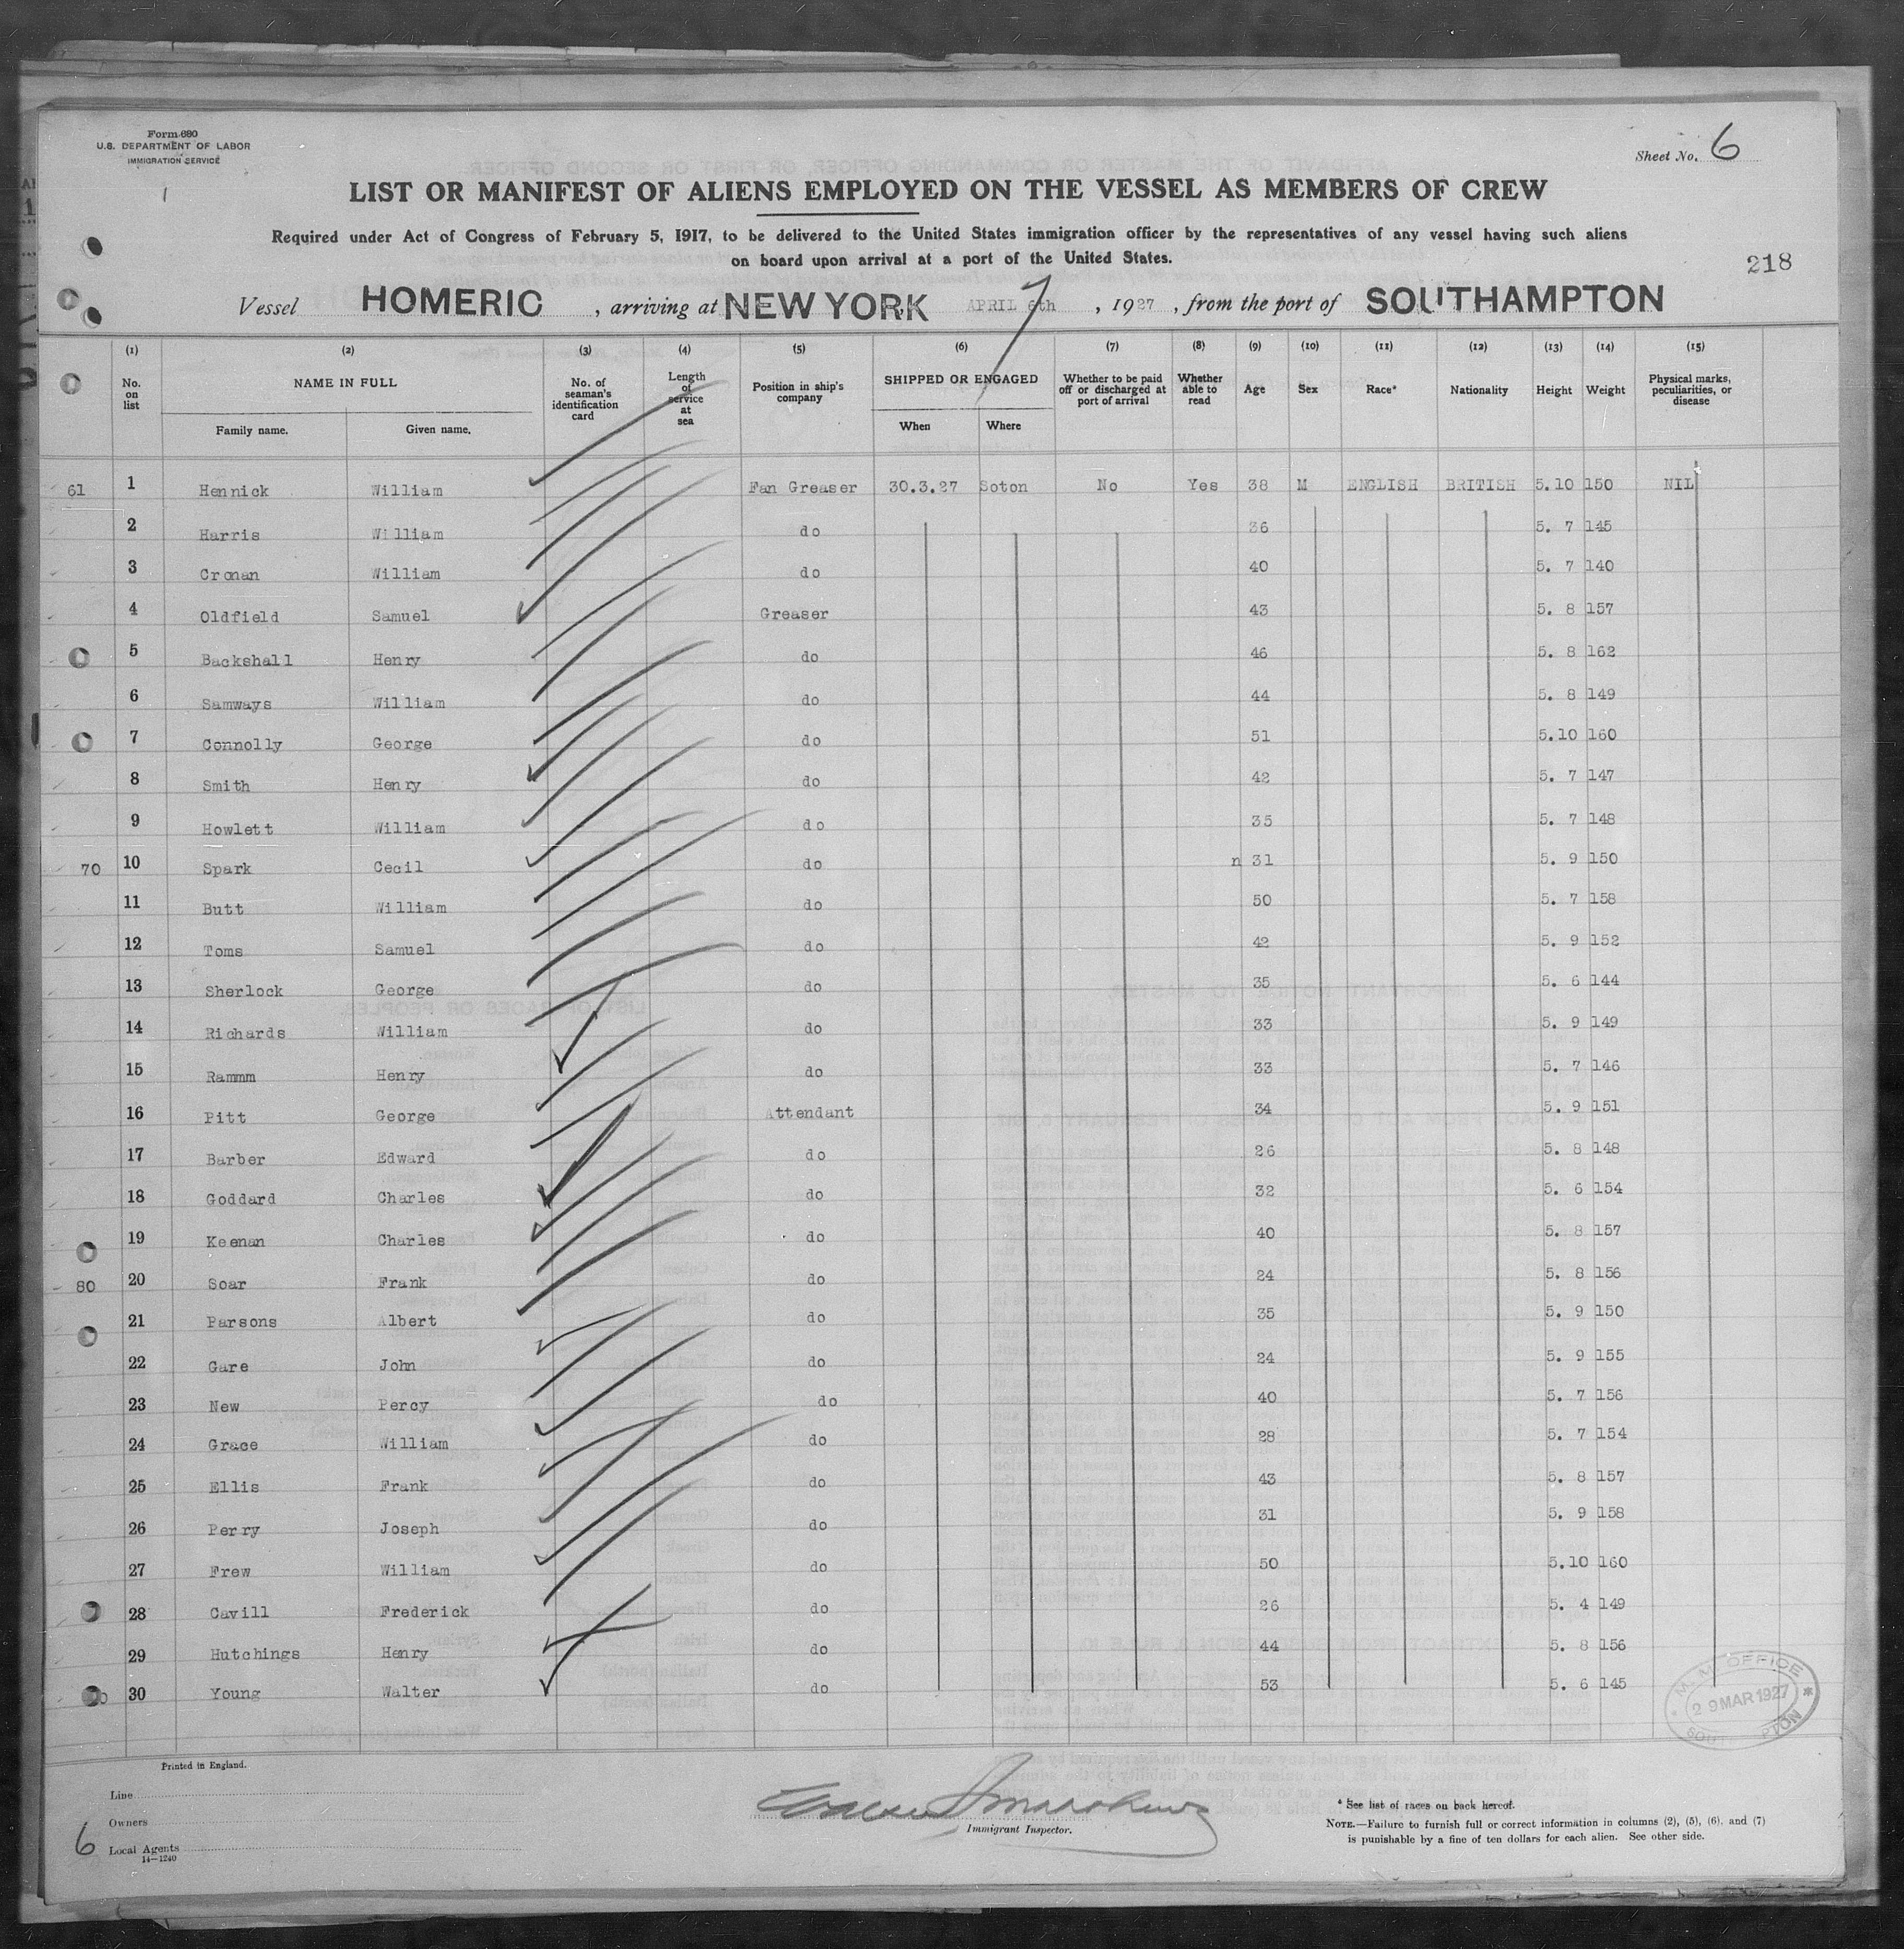 Form 680
U.S. DEPARTMENT OF LABOR
IMMIGRATION SERVICE
Sheet No. 6
LIST OR MANIFEST OF ALIENS EMPLOYED ON THE VESSEL AS MEMBERS OF CREW
Required under Act of Congress of February 5, 1917, to be delivered to the United States immigration officer by the representatives of any vessel having such aliens
on board upon arrival at a port of the United States.
218
Vessel HOMERIC, arriving at NEW YORK APRIL 6th 7, 1927, from the port of SOUTHAMPTON
(1) (2) (3) (4) (5) (6) (7) (8) (9) (10) (11) (12) (13) (14) (15)
No. on list NAME IN FULL Family name. Given name. No. of seaman's identification card Length of service at sea Position in ship's company SHIPPED OR ENGAGED When Where Whether to be paid off or discharged at port of arrival Whether able to read Age Sex Race* Nationality Height Weight Physical marks, peculiarities, or disease
61 1 Hennick William Fan Greaser 30.3.27 Soton No Yes 38 M ENGLISH BRITISH 5.10 150 NIL
2 Harris William do 36 5. 7 145
3 Cronan William do 40 5. 7 140
4 Oldfield Samuel Greaser 43 5. 8 157
5 Backshall Henry do 46 5. 8 162
6 Samways William do 44 5. 8 149
7 Connolly George do 51 5.10 160
8 Smith Henry do 42 5. 7 147
9 Howlett William do 35 5. 7 148
70 10 Spark Cecil do n 31 5. 9 150
11 Butt William do 50 5. 7 158
12 Toms Samuel do 42 5. 9 152
13 Sherlock George do 35 5. 6 144
14 Richards William do 33 5. 9 149
15 Rammm Henry do 33 5. 7 146
16 Pitt George Attendant 34 5. 9 151
17 Barber Edward do 26 5. 8 148
18 Goddard Charles do 32 5. 6 154
19 Keenan Charles do 40 5. 8 157
80 20 Soar Frank do 24 5. 8 156
21 Parsons Albert do 35 5. 9 150
22 Gare John do 24 5. 9 155
23 New Percy do 40 5. 7 156
24 Grace William do 28 5. 7 154
25 Ellis Frank do 43 5. 8 157
26 Perry Joseph do 31 5. 9 158
27 Frew William do 50 5.10 160
28 Cavill Frederick do 26 5. 4 149
29 Hutchings Henry do 44 5. 8 156
30 Young Walter do 53 5. 6 145
M. M. OFFICE
29 MAR 1927
Printed in England.
Line
Owners
6 Local Agents
14—1240
Immigrant Inspector.
* See list of races on back hereof.
NOTE.—Failure to furnish full or correct information in columns (2), (5), (6), and (7)
is punishable by a fine of ten dollars for each alien. See other side.